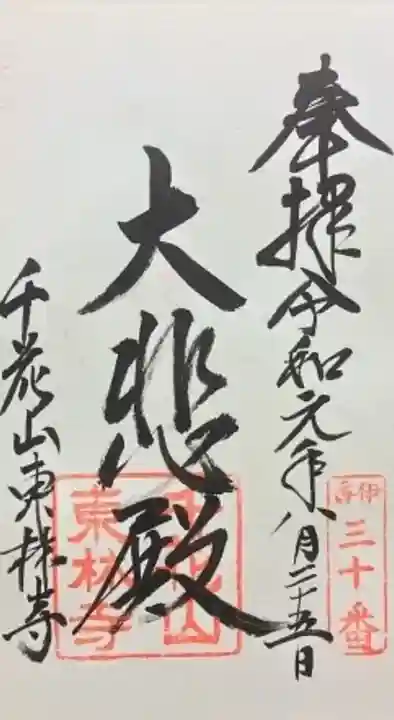 奉拝令和元年八月二十五日
伊寿
三十番
大悲殿
千花山
東林寺
千花山東林寺